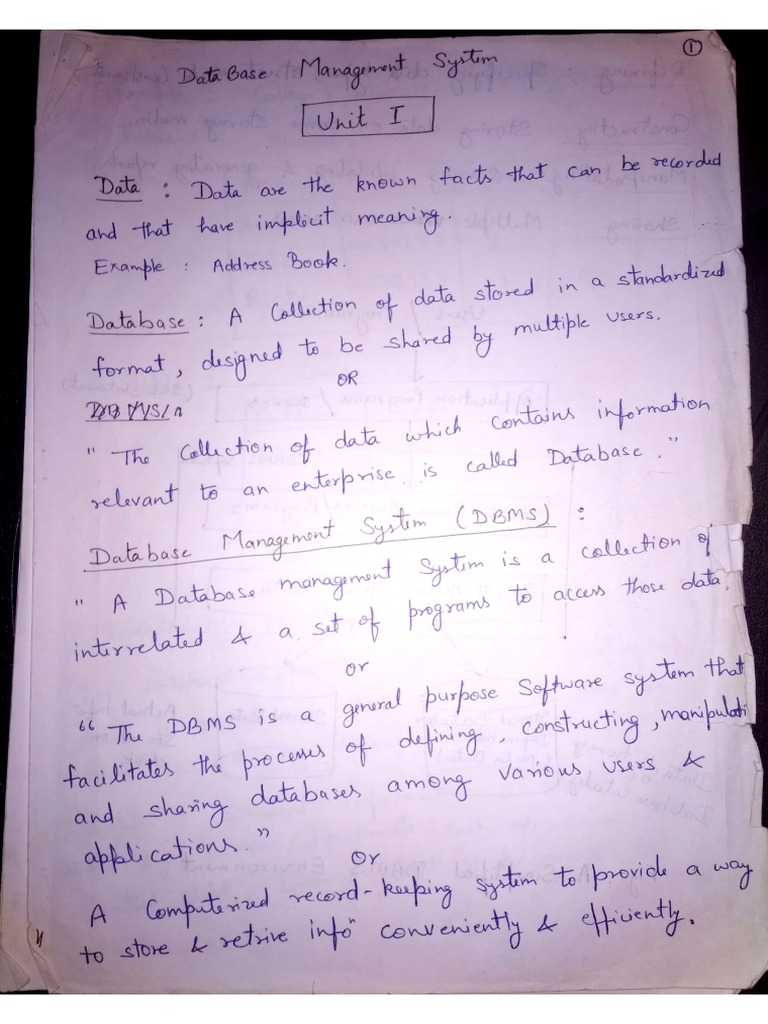 1
DataBase Management System
Unit I
Data : Data are the known facts that can be recorded
and that have implicit meaning.
Example : Address Book.
Database : A Collection of data stored in a standardized
format, designed to be shared by multiple users.
OR
"The Collection of data which contains information
relevant to an enterprise is called Database."
Database Management System (DBMS) :
" A Database management System is a collection of
interrelated & a set of programs to access those data.
or
"The DBMS is a general purpose Software system that
facilitates the processes of defining, constructing, manipulati
and sharing databases among various users &
applications."
Or
A Computerized record-keeping system to provide a way
to store & retrive info" conveniently & efficiently.